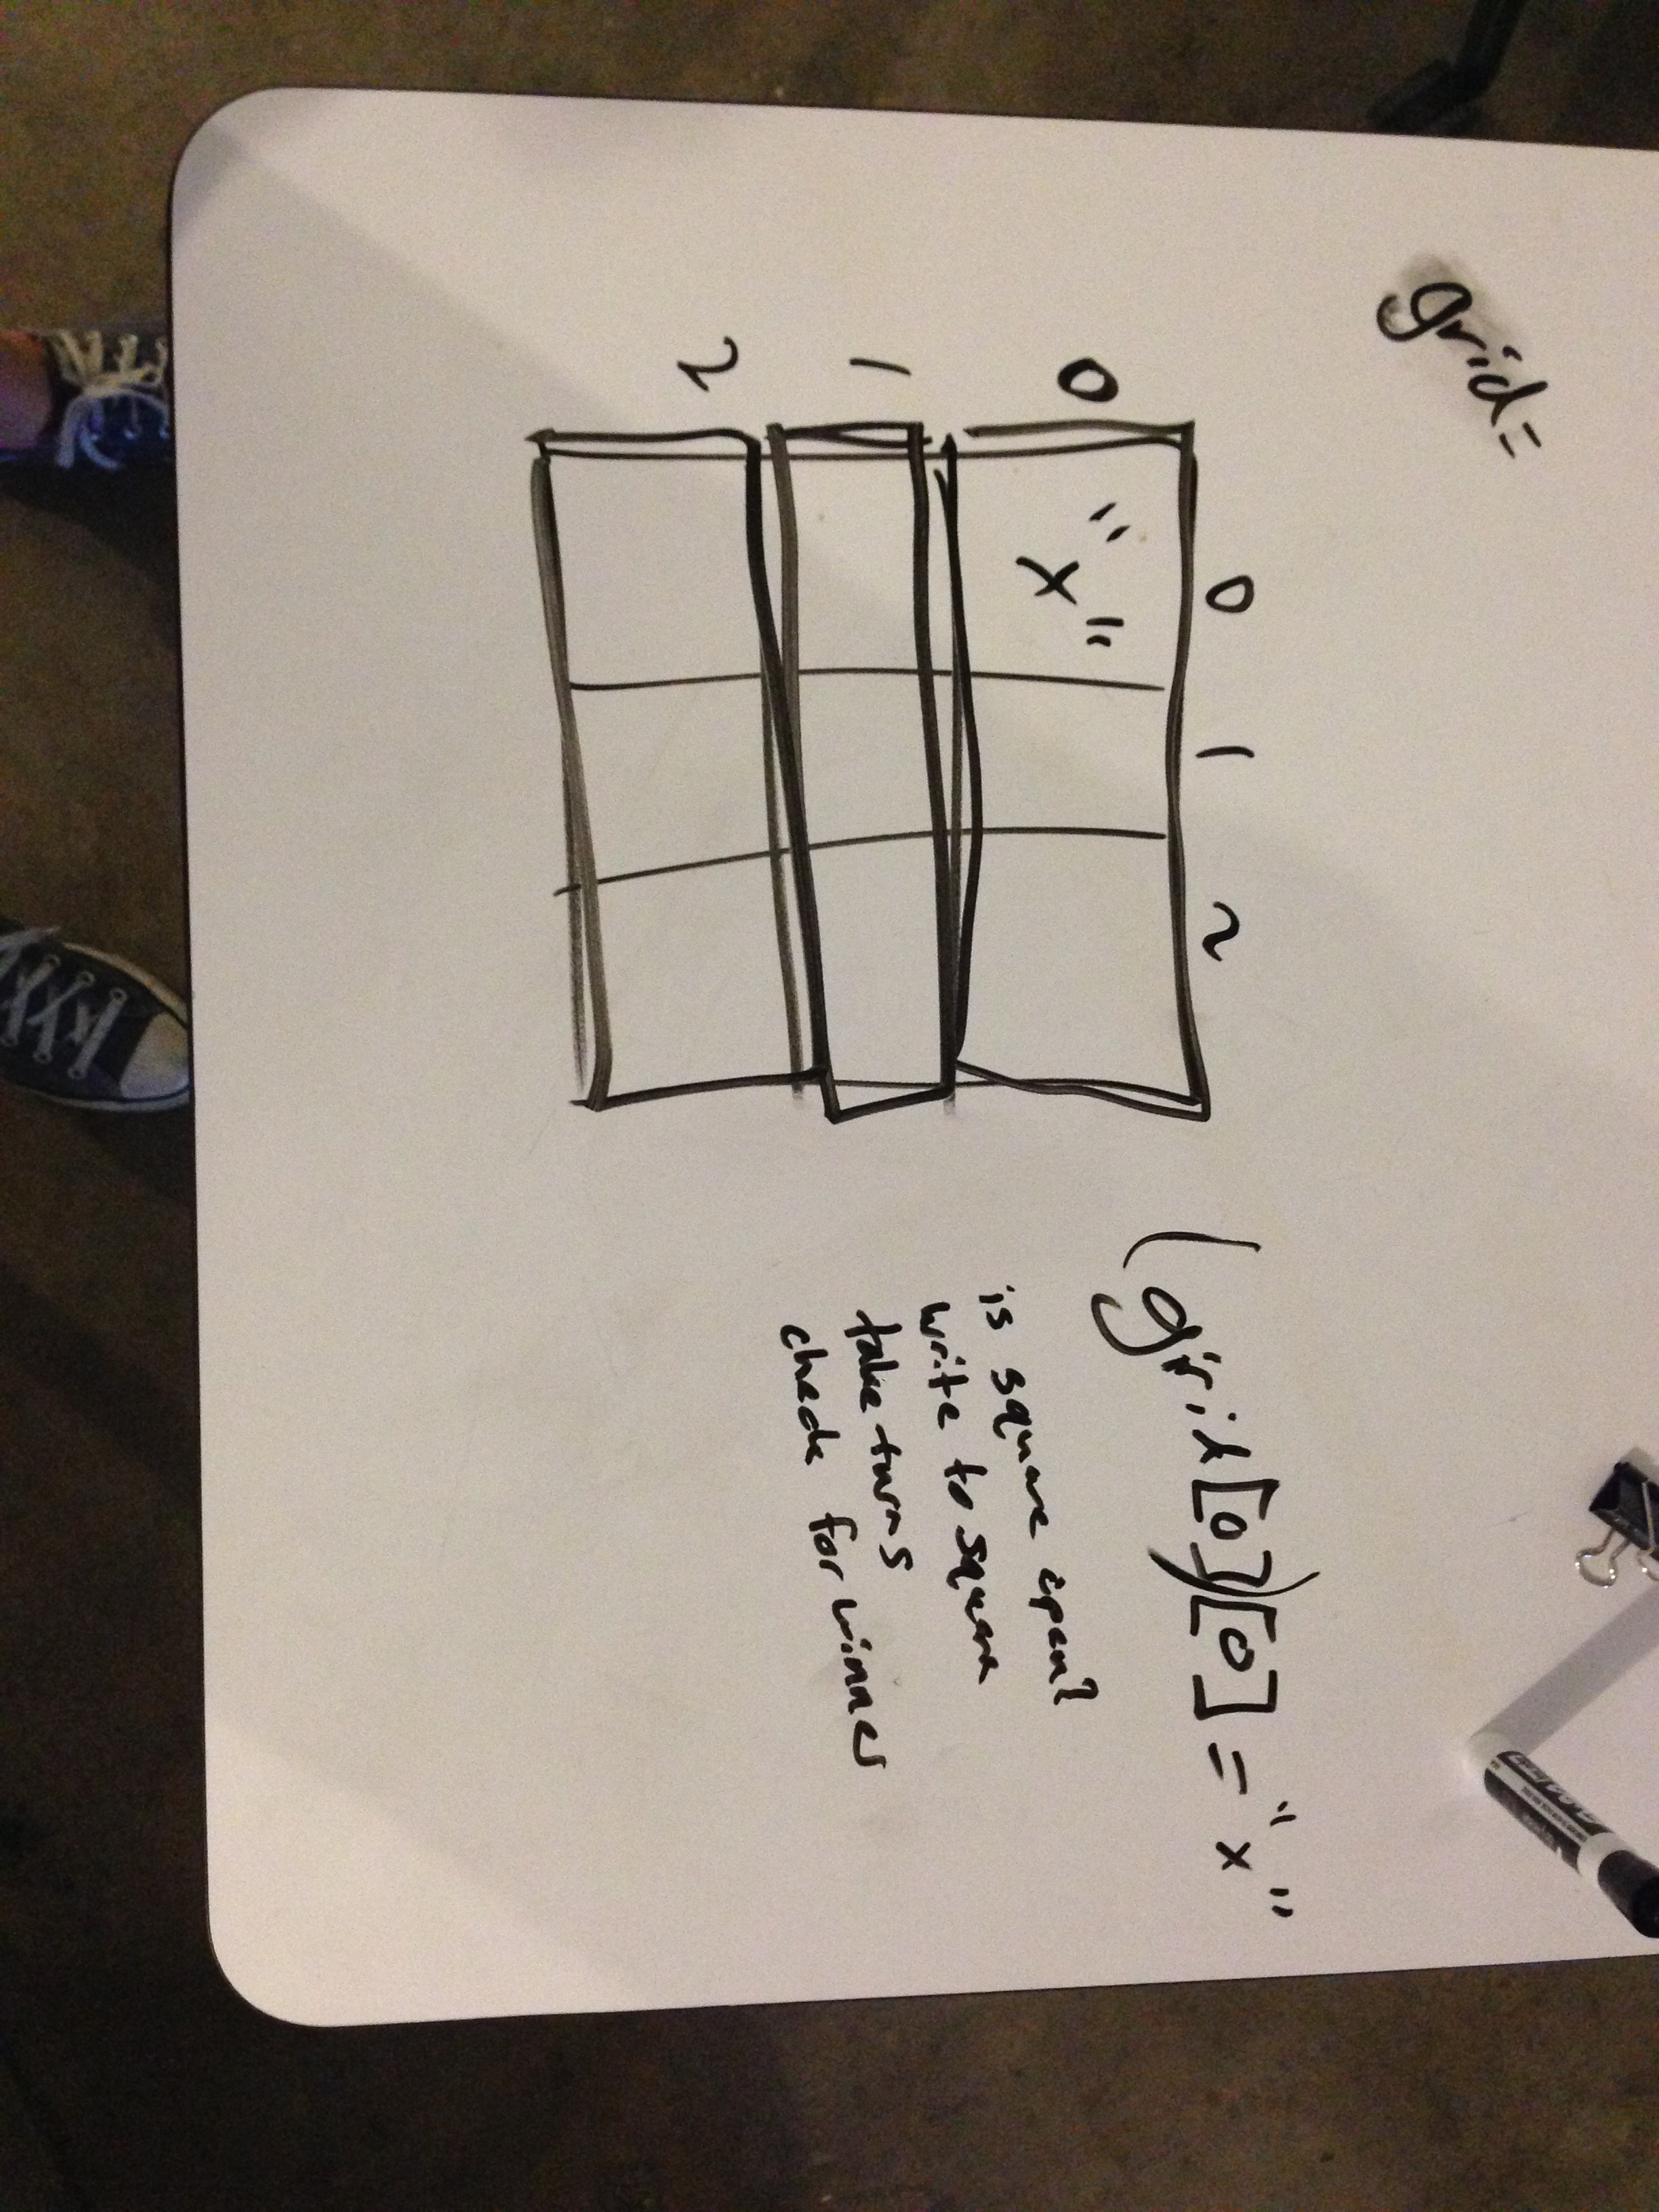 grid=
0 1 2
0 "x"
1
2
(grid[0])[0] = "x"
is square open?
write to square
take turns
check for winner